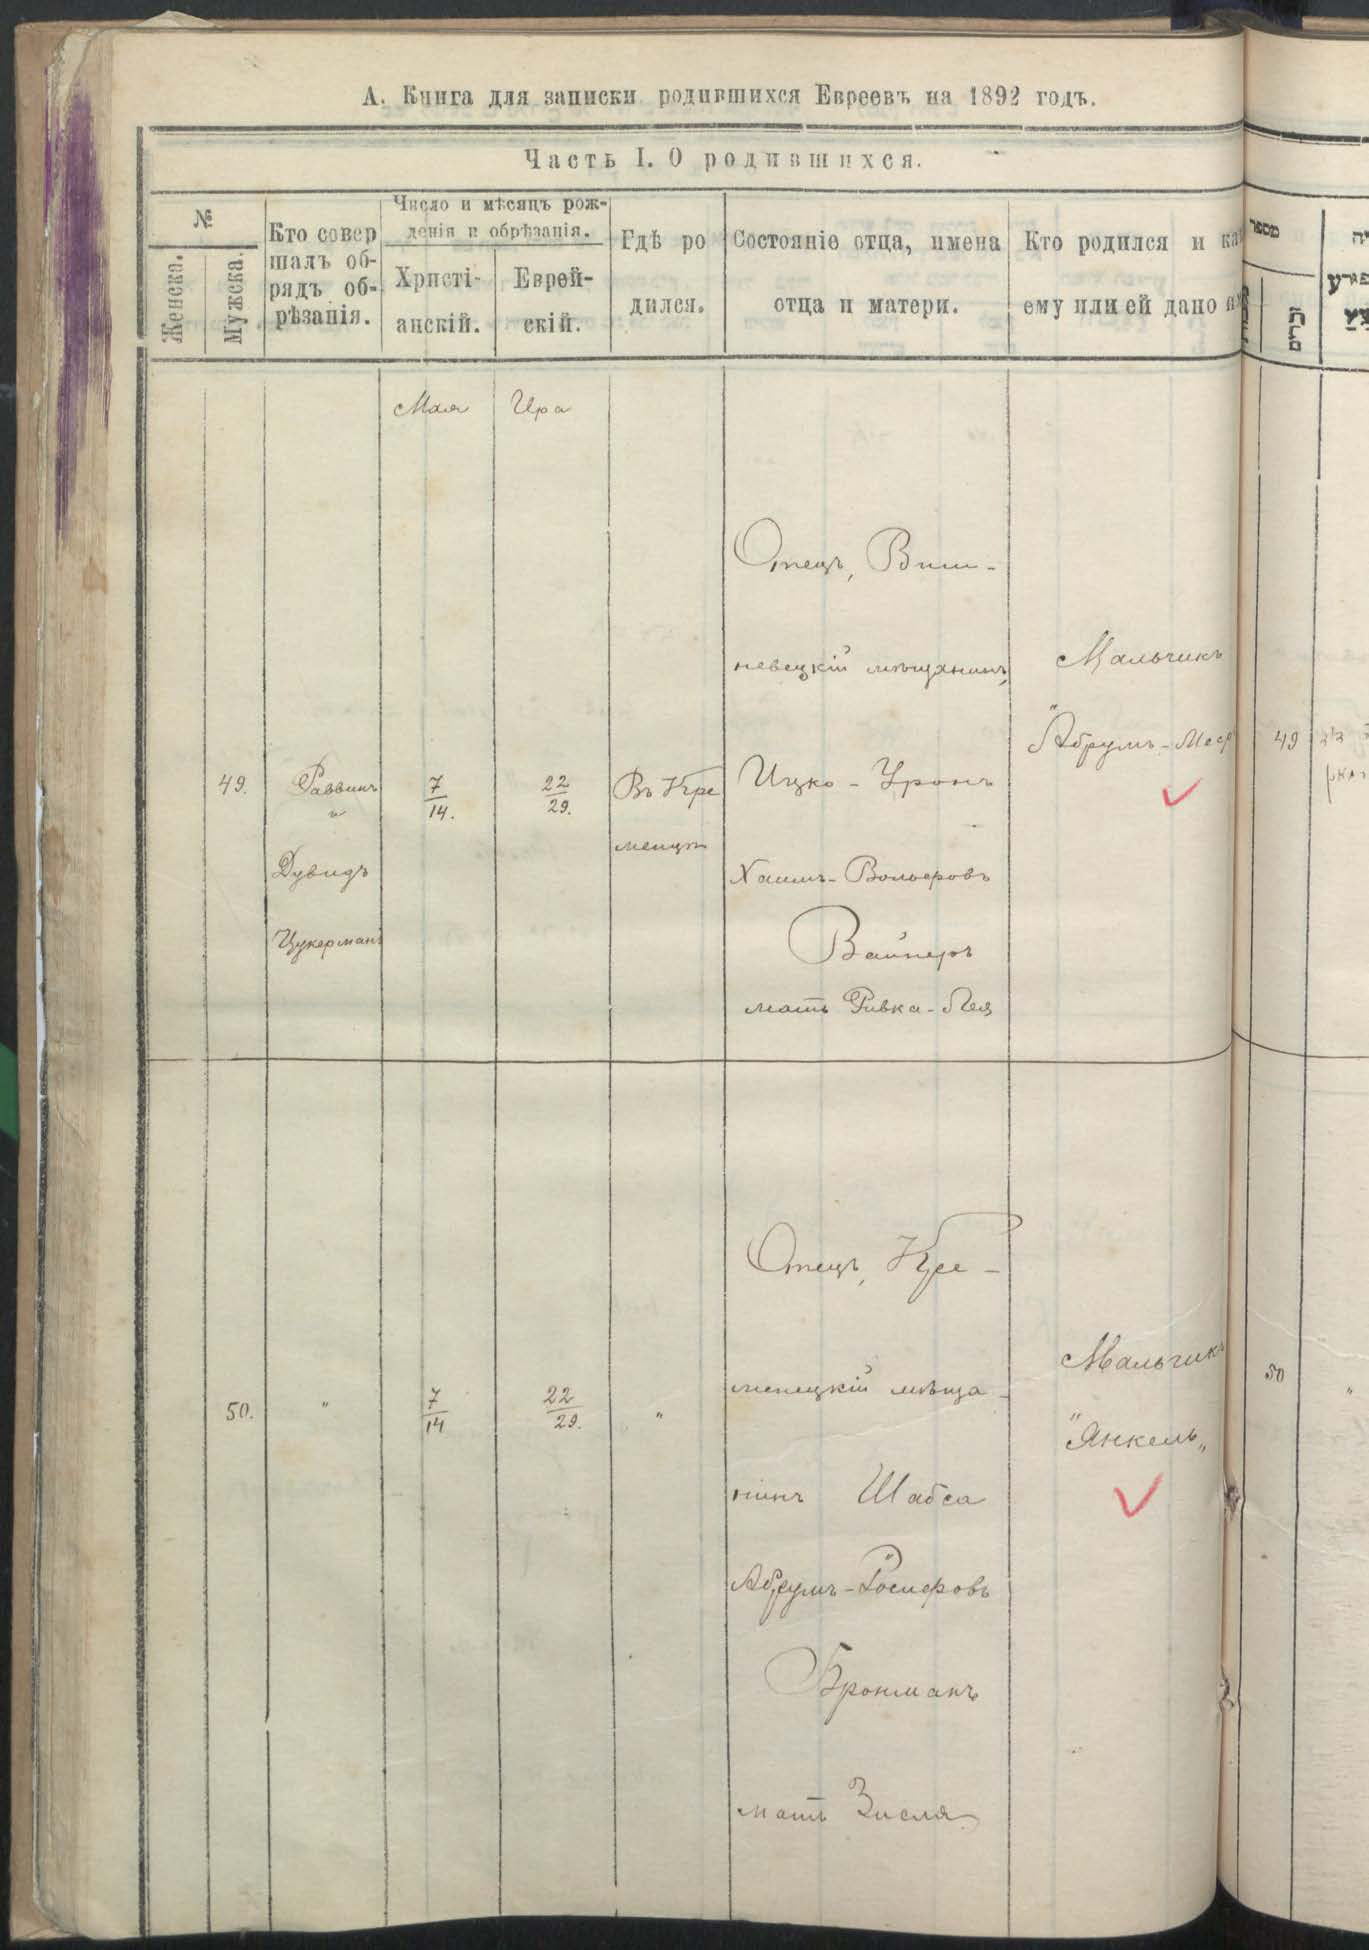 А. Книга для записки родившихся Евреевъ на 1892 годъ.
Часть I. О родившихся.
№
Женска.
Мужска.
Кто совер
шалъ об-
рядъ об-
рѣзанія.
Число и мѣсяцъ рож-
денія и обрѣзанія.
Христі-
анскій.
Еврей-
скій.
Гдѣ ро
дился.
Состояніе отца, имена
отца и матери.
Кто родился и ка
ему или ей дано и
מספר
זכרים
Мая
Ира
49.
Раввинъ
и
Дувидъ
Цукерманъ
7
14.
22
29.
Въ Кре
менцѣ
Отецъ, Виш-
невецкій мѣщанинъ,
Ицко - Уронъ
Хаимъ-Вольфовъ
Вайнеръ
мать Ривка-Лея
Мальчикъ
"Абрумъ-Меер
49
50.
"
7
14
22
29.
"
Отецъ, Кре-
менецкій мѣща-
нинъ Шабса
Абрумъ-Іосифовъ
Бронманъ
мать Зисля
Мальчикъ
"Янкель"
50
"